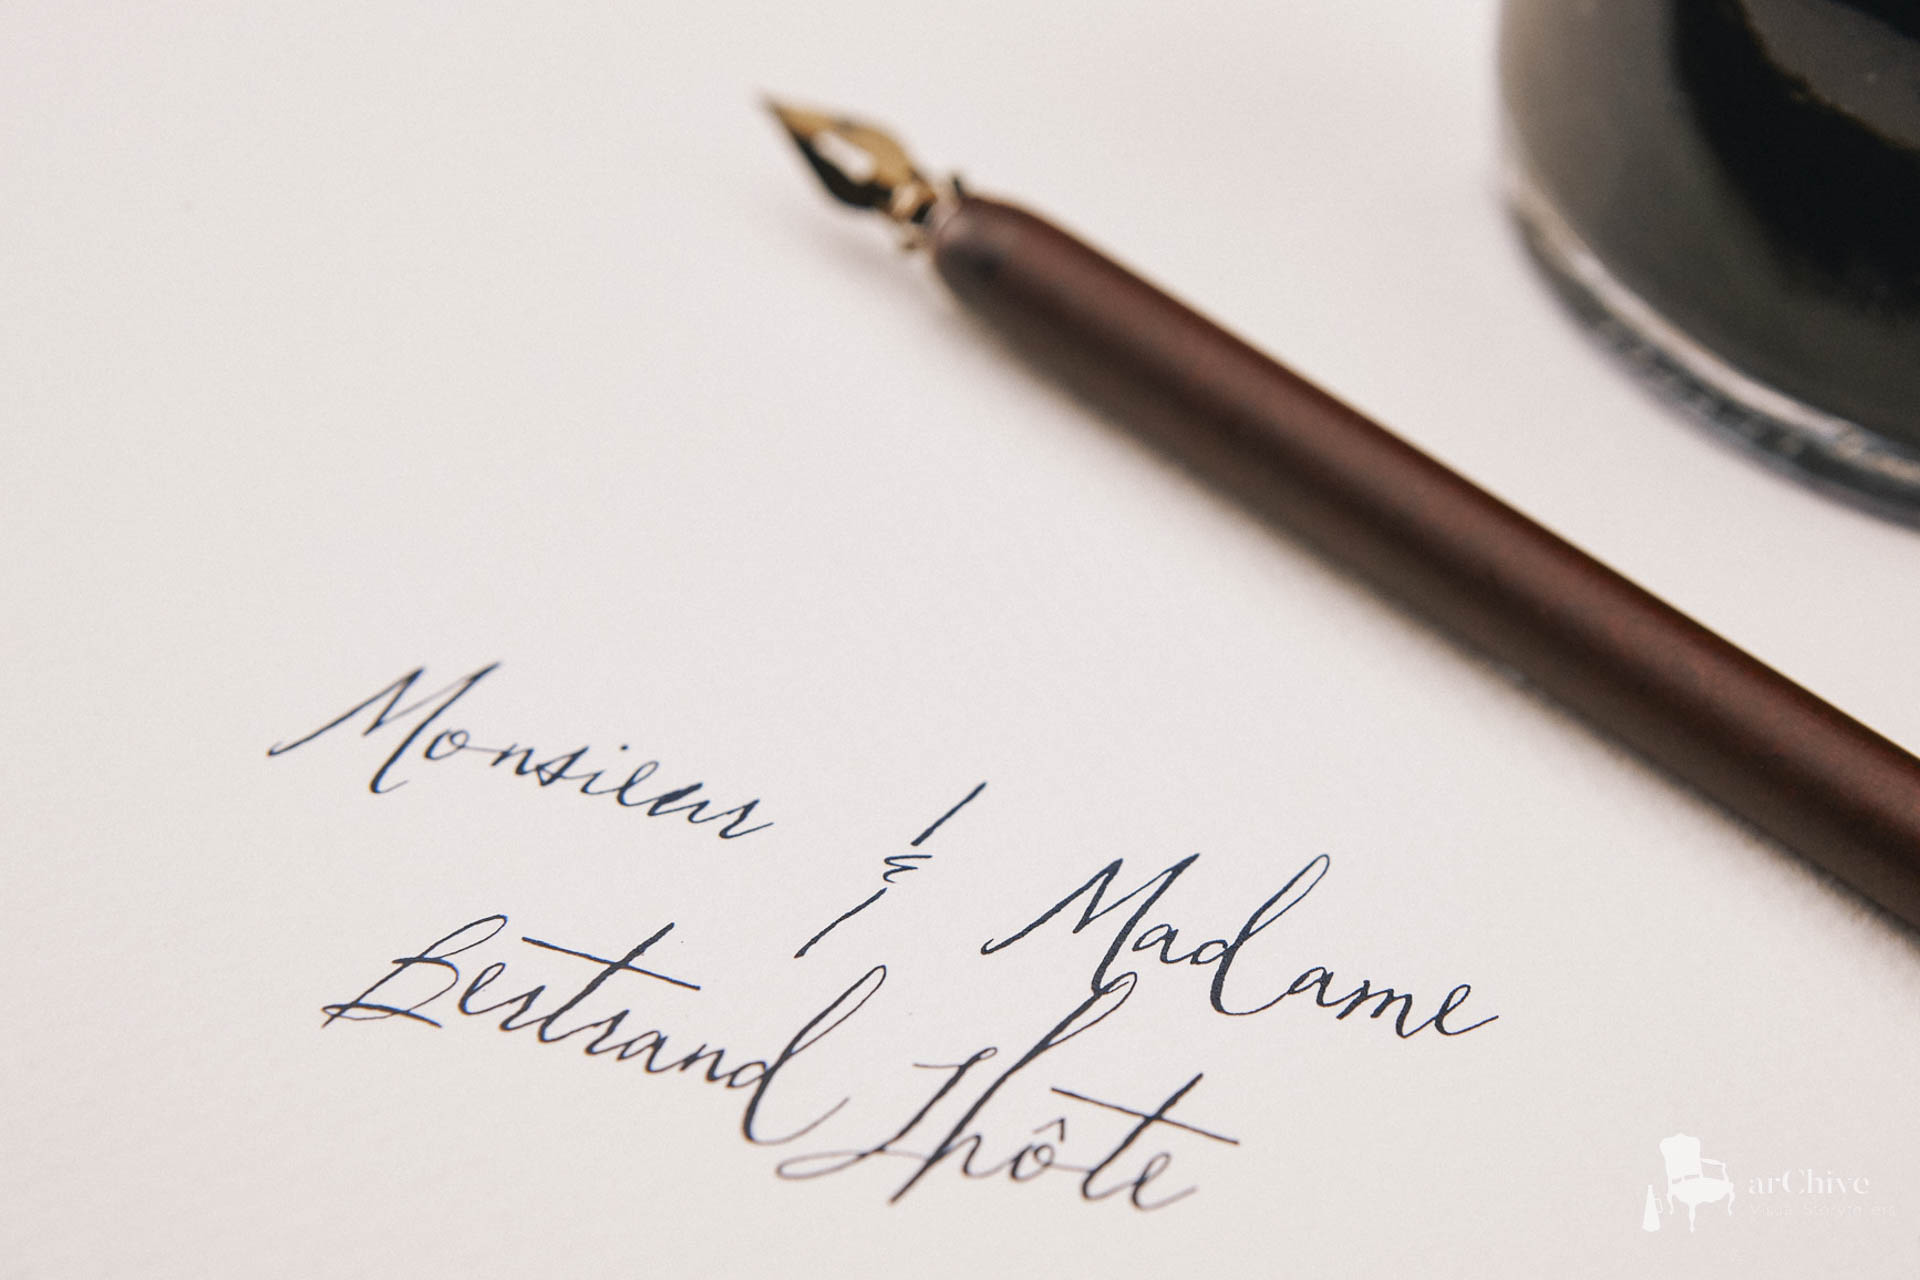 Monsieur & Madame
Bertrand Lhôte
arChive
Visual Storytellers